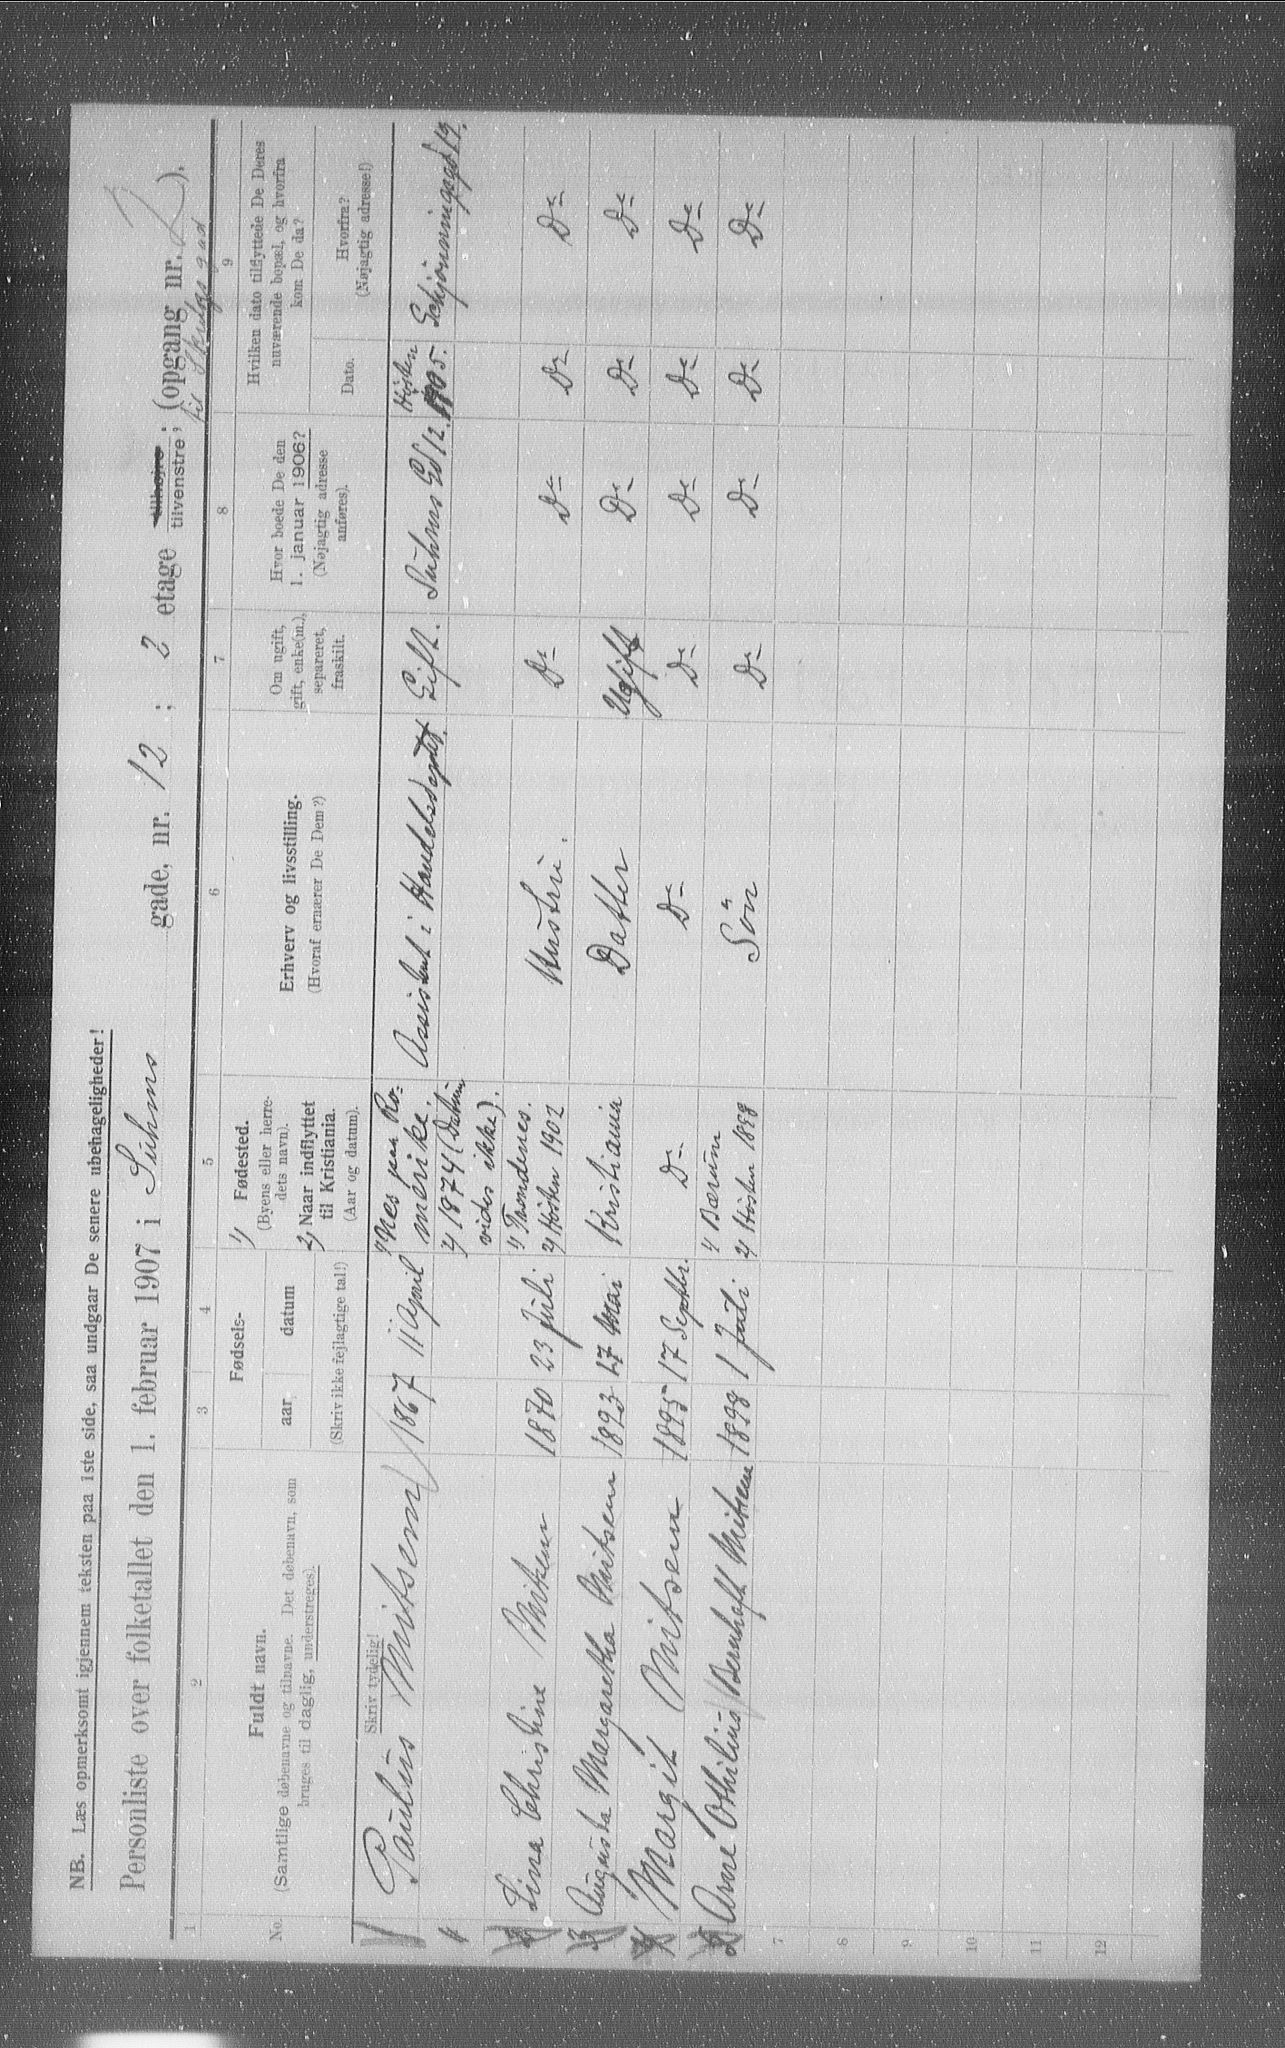 NB. Læs opmerksomt igjennem teksten paa 1ste side, saa undgaar De senere ubehageligheder!
Personliste over folketallet den 1. februar 1907 i Suhms gade, nr. 12 ; 2 etage tilhøjre, tilvenstre; (opgang nr. ).
til
1 2 3 4 5 6 7 8 9
No.
Fuldt navn.
(Samtlige døbenavne og tilnavne. Det døbenavn, som
bruges til daglig, understreges).
Skriv tydelig!
Fødsels-
aar datum
(Skriv ikke fejlagtige tal!)
1) Fødested.
(Byens eller herre-
dets navn).
2) Naar indflyttet
til Kristiania.
(Aar og datum).
Erhverv og livsstilling.
(Hvoraf ernærer De Dem?)
Om ugift,
gift, enke(m.),
separeret,
fraskilt.
Hvor boede De den
1. januar 1906?
(Nøjagtig adresse
anføres).
Hvilken dato tilflyttede De Deres
nuværende bopæl, og hvorfra
kom De da?
Dato.
Hvorfra?
(Nøjagtig adresse!)
Paulus Mitsem 1867 11 April 1) Nes paa Ro= Assistent i Handelsdeptet. Gift. Suhms Gd 12. Høsten 1905. Schjønningsgd 19.
merike.
2) 1874 (Datum
vides ikke).
Lina Christine Mitsem 1870 23 juli 1) Trondenes. Hustru. Do Do Do Do
2) Høsten 1902
Augusta Margaretha Mitsem 1893 27 Mai Kristiania Datter Ugift Do Do Do
Margit Mitsem 1895 17 Septbr. Do Do Do Do Do Do
Arne Othilius Bernhoft Mitsem 1898 1 Juli 1) Bærum Søn Do Do Do Do
2) Høsten 1898
7
8
9
10
11
12